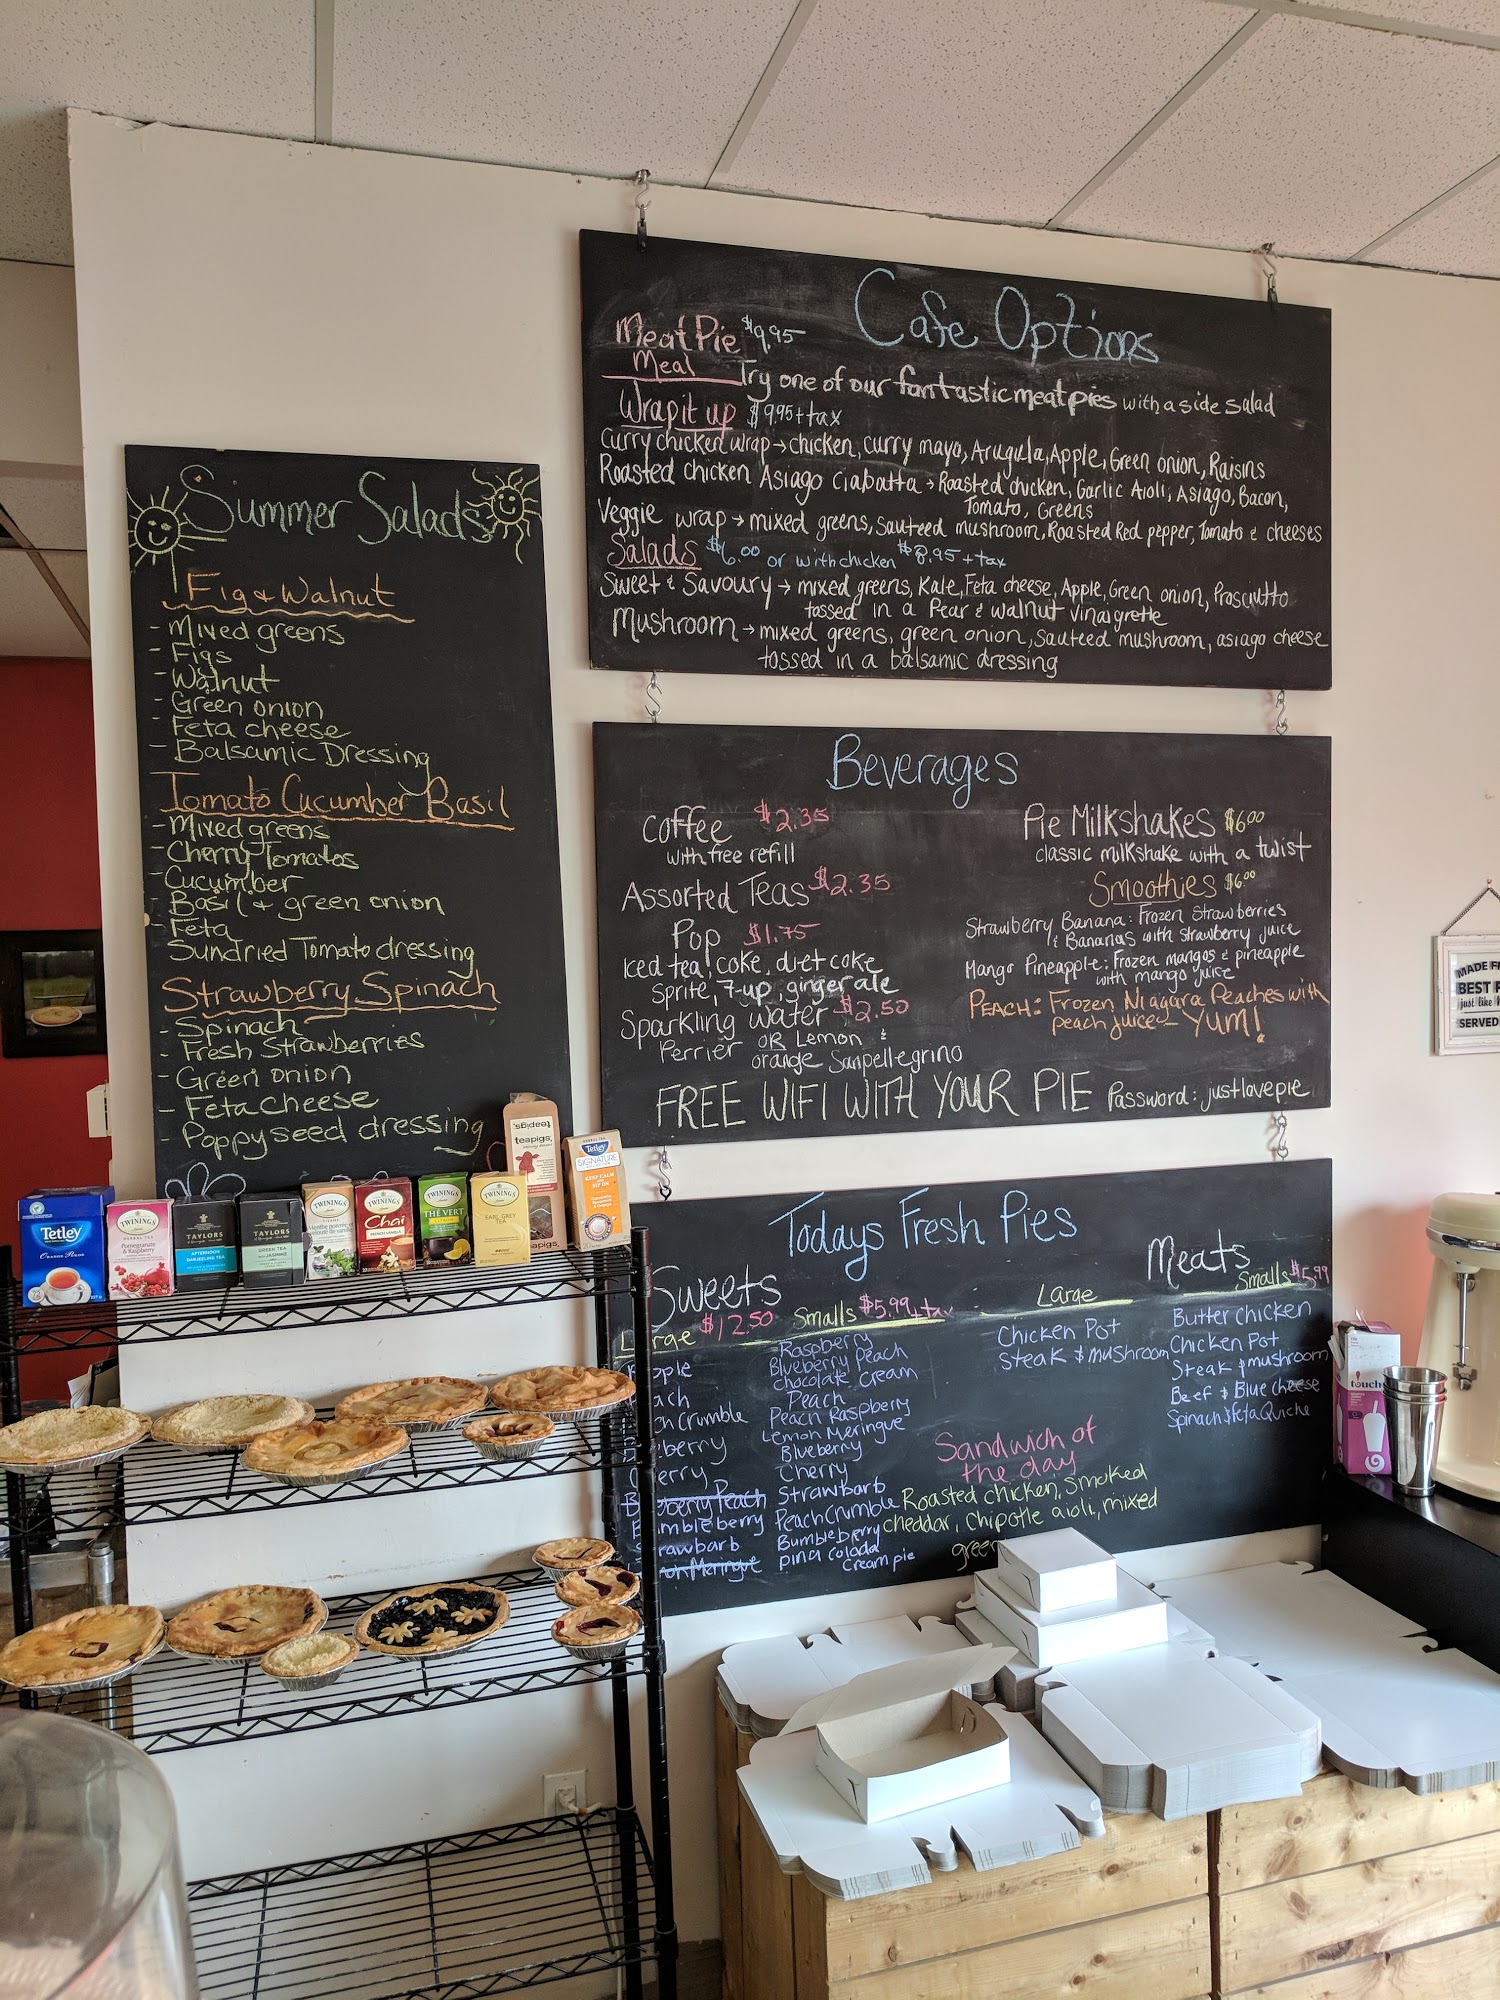 Summer Salads
Fig & Walnut
- Mixed greens
- Figs
- Walnut
- Green onion
- Feta cheese
- Balsamic Dressing
Tomato Cucumber Basil
- Mixed greens
- Cherry Tomatos
- Cucumber
- Basil & green onion
- Feta
- Sundried Tomato dressing
Strawberry Spinach
- Spinach
- Fresh Strawberries
- Green onion
- Feta cheese
- Poppyseed dressing
Cafe Options
Meat Pie $9.95
Meal
Try one of our fantastic meat pies with a side salad
Wrap it up $9.95 + tax
Curry chicken wrap → chicken, curry mayo, Arugula, Apple, Green onion, Raisins
Roasted chicken Asiago ciabatta → Roasted chicken, Garlic Aioli, Asiago, Bacon,
Tomato, Greens
Veggie wrap → mixed greens, sauteed mushroom, Roasted Red pepper, Tomato & cheeses
Salads $6.00 or with chicken $8.95 + tax
Sweet & Savoury → mixed greens, Kale, Feta cheese, Apple, Green onion, Prosciutto
tossed in a Pear & walnut vinaigrette
Mushroom → mixed greens, green onion, sauteed mushroom, asiago cheese
tossed in a balsamic dressing
Beverages
coffee $2.35
with free refill
Assorted Teas $2.35
Pop $1.75
Iced tea, coke, diet coke
Sprite, 7-up, ginger ale
Sparkling water $2.50
Perrier OR Lemon &
orange Sanpellegrino
Pie Milkshakes $6.00
classic milkshake with a twist
Smoothies $6.00
Strawberry Banana: Frozen Strawberries
& Bananas with strawberry juice
Mango Pineapple: Frozen mangos & pineapple
with mango juice
PEACH: Frozen Niagara Peaches with
peach juice - YUM!
FREE WIFI WITH YOUR PIE Password: justlovepie
Todays Fresh Pies
Sweets
Large $12.50
pple
ach
ch crumble
eberry
herry
Blueberry Peach
Bumbleberry
rawbarb
on Meringue
Smalls $5.99 + tax
Raspberry
Blueberry Peach
chocolate cream
Peach
Peach Raspberry
Lemon Meringue
Blueberry
Cherry
Strawbarb
Peach Crumble
Bumbleberry
pina colada
cream pie
Meats
Large
Chicken Pot
Steak & mushroom
Smalls $5.99
Butter chicken
Chicken Pot
Steak & mushroom
Beef & Blue cheese
Spinach & feta Quiche
Sandwich of
the day
Roasted chicken, smoked
cheddar, chipotle aioli, mixed
green
teapigs.
teapigs.
Tetley
SIGNATURE
Tetley
Orange Pekoe
TWININGS
Pomegranate
& Raspberry
TAYLORS
AFTERNOON
DARJEELING TEA
TAYLORS
GREEN TEA
with JASMINE
TWININGS
TWININGS
Chai
FRENCH VANILLA
TWININGS
THÉ VERT
CITRON
TWININGS
EARL GREY
TEA
MADE FR
BEST P
just like
SERVED
touch